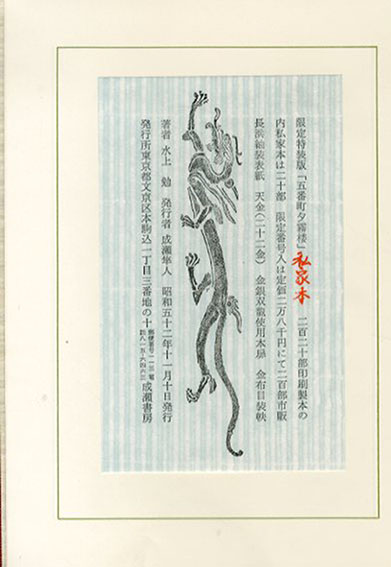 限定特装版「五番町夕霧楼」私家本 二百二十部印刷製本の
内私家本は二十部 限定番号入は定価二万八千円にて二百部市販
長浜紬装表紙 天金(二十二金) 金銀双龍使用本扉 金布目装帙
著者 水上 勉 発行者 成瀬隼人 昭和五十二年十一月十日発行
発行所東京都文京区本駒込一丁目三番地の十 郵便番号一一三 成瀬書房